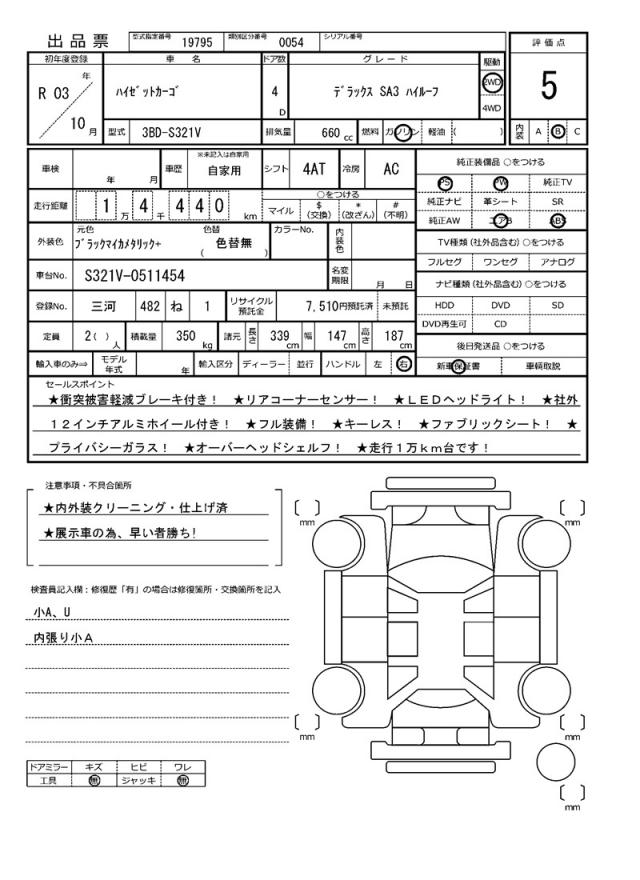 出品票
型式指定番号 19795 類別区分番号 0054 シリアル番号
初年度登録 車名 ドア数 グレード 駆動 評価点
R 03 年 10 月
ﾊｲｾﾞｯﾄｶｰｺﾞ 4 D ﾃﾞﾗｯｸｽ SA3 ﾊｲﾙｰﾌ 2WD 4WD 5
型式 3BD-S321V 排気量 660 cc 燃料 ガソリン 軽油 ( ) 内装 A B C
車検 年 月 車歴 ※未記入は自家用 自家用 シフト 4AT 冷房 AC
走行距離 1 万 4 千 4 4 0 km
○をつける
マイル $ (交換) * (改ざん) # (不明)
外装色 元色 ﾌﾞﾗｯｸﾏｲｶﾒﾀﾘｯｸ+ 色替 ( 色替無 ) カラーNo. 内装色
車台No. S321V-0511454 名変期限 月 日
登録No. 三河 482 ね 1 リサイクル預託金 7,510円預託済 未預託
定員 2( ) 人 積載量 350 kg 諸元 長さ 339 cm 幅 147 cm 高さ 187 cm
輸入車のみ⇒ モデル年式 年 輸入区分 ディーラー 並行 ハンドル 左 右
純正装備品 ○をつける
PS PW 純正TV
純正ナビ 革シート SR
純正AW エアB ABS
TV種類 (社外品含む) ○をつける
フルセグ ワンセグ アナログ
ナビ種類 (社外品含む) ○をつける
HDD DVD SD
DVD再生可 CD
後日発送品 ○をつける
新車保証書 車輌取説
セールスポイント
★衝突被害軽減ブレーキ付き！ ★リアコーナーセンサー！ ★ＬＥＤヘッドライト！ ★社外
１２インチアルミホイール付き！ ★フル装備！ ★キーレス！ ★ファブリックシート！ ★
プライバシーガラス！ ★オーバーヘッドシェルフ！ ★走行１万ｋｍ台です！
注意事項・不具合箇所
★内外装クリーニング・仕上げ済
★展示車の為、早い者勝ち!
検査員記入欄：修復歴「有」の場合は修復箇所・交換箇所を記入
小A、U
内張り小Ａ
ドアミラー キズ ヒビ ワレ
工具 無 ジャッキ 無
[ ] mm
[ ] mm
[ ] mm
[ ] mm
[ ] mm